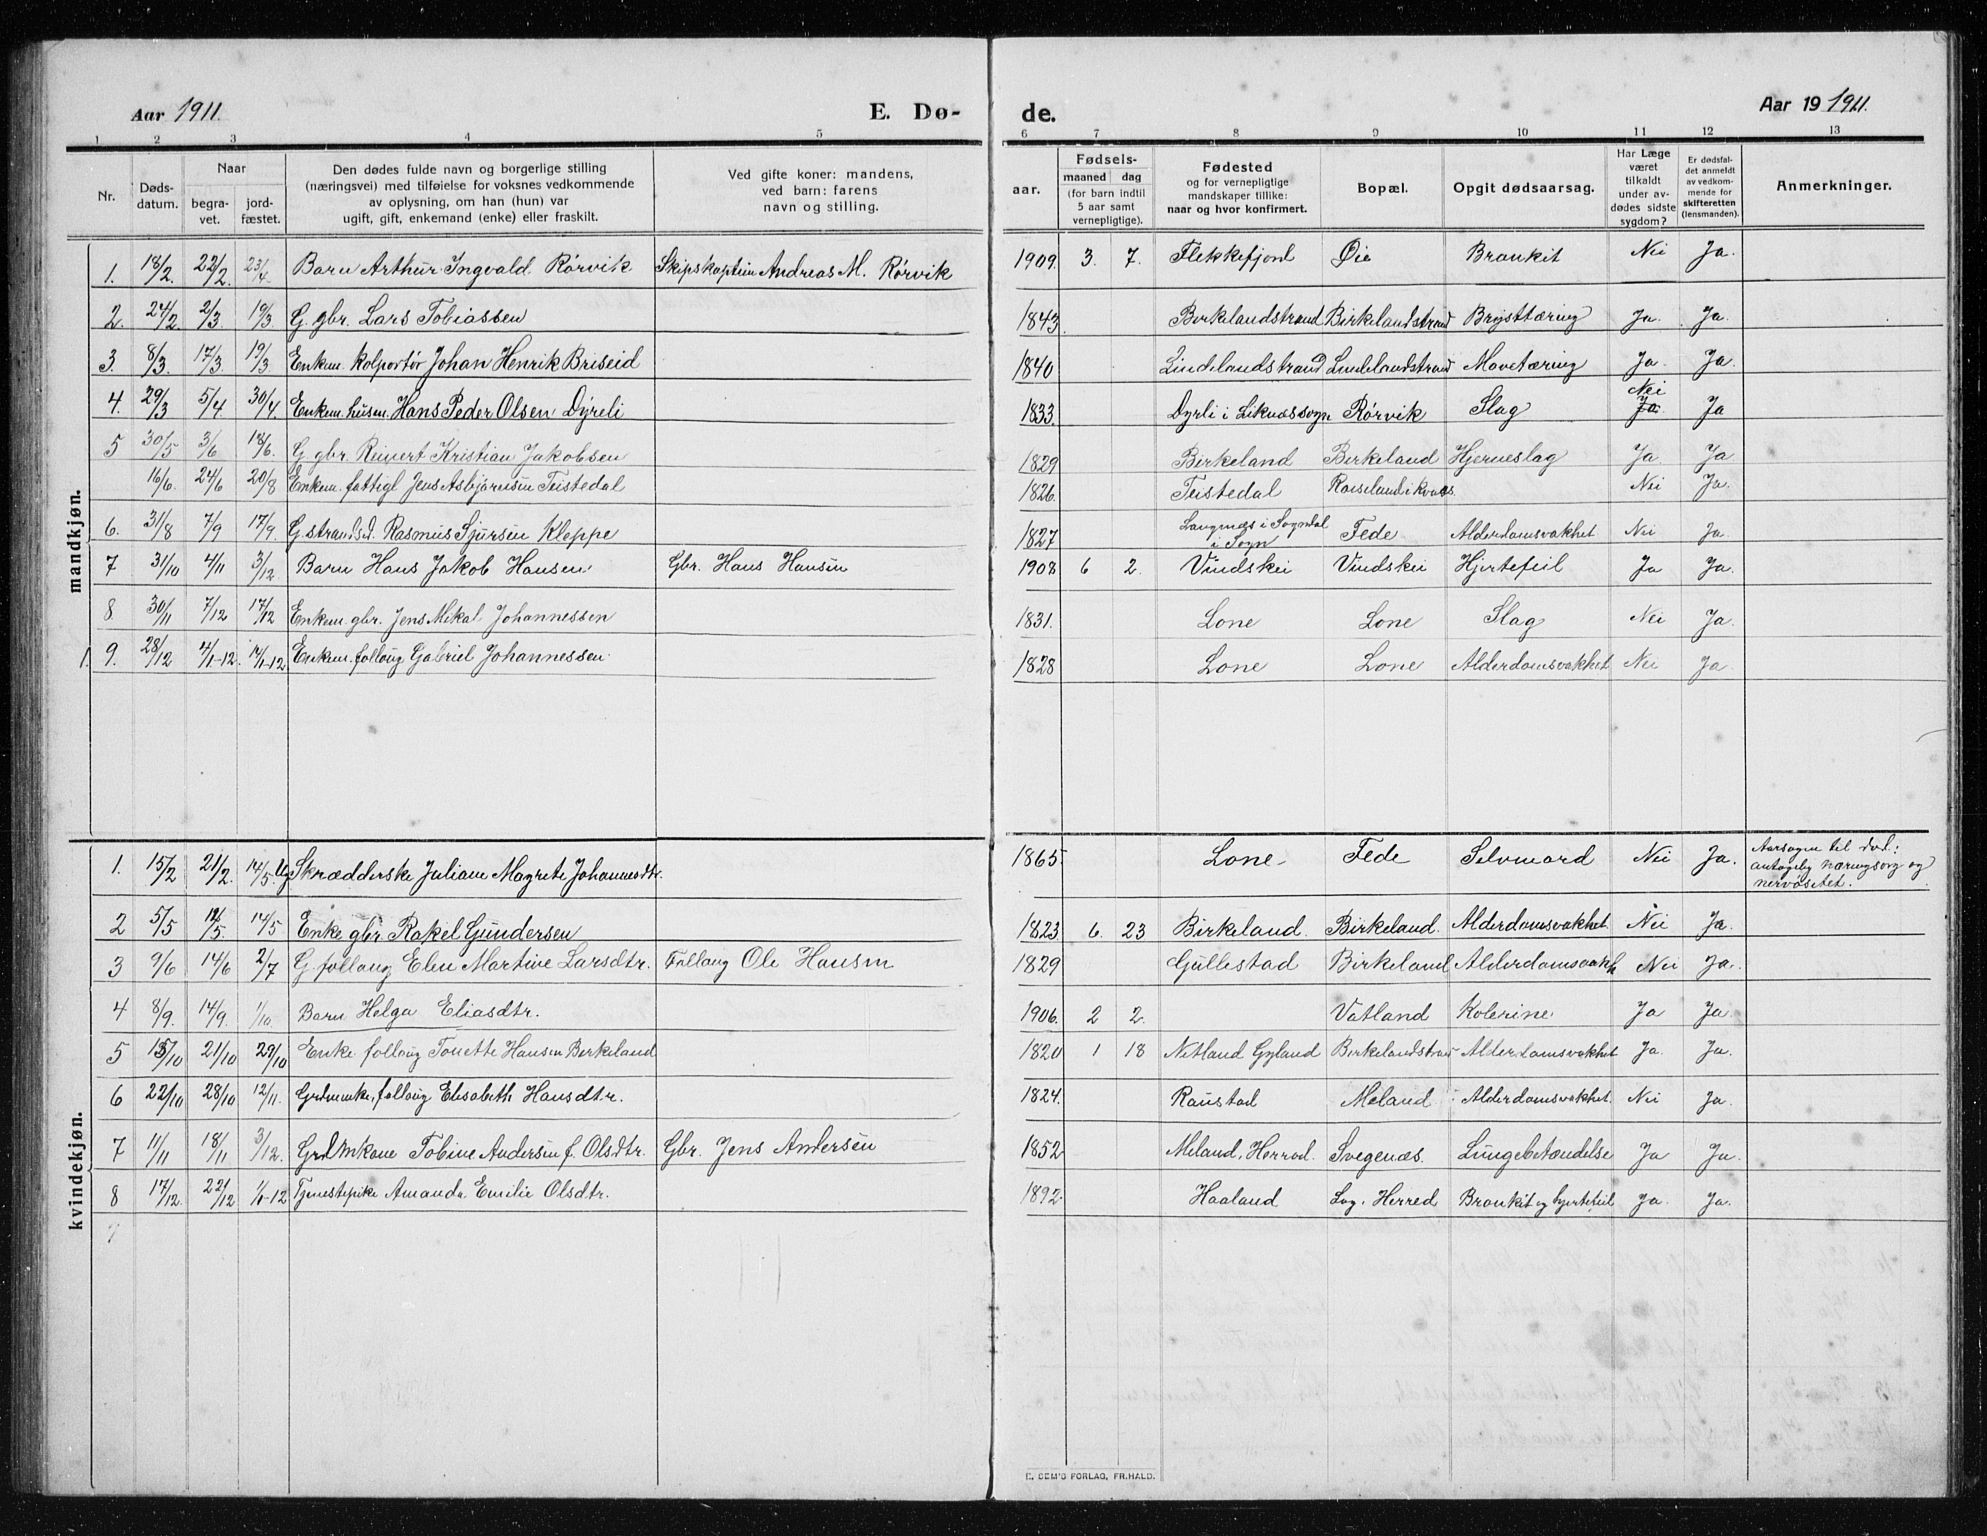 Aar 1911. E. Dø- de. Aar 19 1911.
1 2 3 4 5 6 7 8 9 10 11 12 13
Nr. Døds-datum. Naar begra-vet. jord-fæstet. Den dødes fulde navn og borgerlige stilling (næringsvei) med tilføielse for voksnes vedkommende av oplysning, om han (hun) var ugift, gift, enkemand (enke) eller fraskilt. Ved gifte koner: mandens, ved barn: farens navn og stilling. aar. Fødsels- maaned dag (for barn indtil 5 aar samt vernepligtige). Fødested og for vernepligtige mandskaper tillike: naar og hvor konfirmert. Bopæl. Opgit dødsaarsag. Har Læge været tilkaldt under av-dødes sidste sygdom? Er dødsfal-det anmeldt av vedkom-mende for skifteretten (lensmanden). Anmerkninger.
mandkjøn.
1. 18/2. 22/2. 23/4. Barn Arthur Ingvald Rørvik Skipskaptein Andreas M. Rørvik 1909. 3. 7. Flekkefjord Øie Bronkit Nei Ja.
2. 24/2 2/3 19/3 G. gbr. Lars Tobiassen 1843. Birkelandstrand Birkelandstrand Brysttæring Ja. Ja.
3. 8/3. 17/3. 19/3 Enkem. kolportør Johan Henrik Briseid 1840 Lindelandstrand Lindelandstrand Mavetæring Ja. Ja.
4. 29/3 5/4 30/4. Enkem. husm. Hans Peder Olsen Dyrli 1833. Dyrli i Liknæs sogn Rørvik Slag Nei Ja. Ja
5 30/5 3/6 18/6. G. gbr. Reinert Kristian Jakobsen 1829 Birkeland Birkeland Hjerneslag Ja. Ja
16/6. 24/6 20/8 Enkem. fattigl Jens Asbjørnsen Teistedal 1826. Teistedal Roiseland i Kvaas Nei Ja.
6. 31/8 7/9 17/9. G. strandsd. Rasmus Sjursen Kleppe 1827 Langnæs i Sogndal i Sogn Fede Alderdomsvakhet Nei Ja.
7 31/10 4/11 3/12. Barn Hans Jakob Hansen Gbr. Hans Hansen 1908 6 2. Vindskei Vindskei Hjertefeil Ja Ja.
8 30/11 7/12 17/12 Enkem. gbr. Jens Mikal Johannessen 1831. Lone Lone Slag Nei Ja.
1. 9. 28/12 4/1-12. 14/1-12 Enkem. follaug Gabriel Johannessen. 1828 Lone Lone Alderdomsvakhet Nei Ja.
kvindekjøn.
1. 15/2 21/2. 14/5. Ug. Skrædderske Juliane Magrete Johannesdtr. 1865. Lone. Fede Selvmord Nei Ja. Aarsagen til død: antagelig næringssorg og nervøsitet.
2 5/5 12/5. 14/5 Enke gbr. Rakel Gundersen 1823 6. 23 Birkeland. Birkeland. Alderdomsvakhet Nei Ja.
3 9/6 14/6 2/7 G follaug Elen Martine Larsdtr. Follaug Ole Hansen 1829 Gullestad Birkeland Alderdomsvakh Nei Ja.
4 8/9. 14/9. 1/10. Barn Helga Eliasdtr. 1906. 2 2. Vatland Kolerine Ja Ja.
5 15/10 21/10 29/10 Enke follaug Tonette Hansen Birkeland 1820 1 18 Netland Gyland Birkelandstrand Alderdomsvakhet Ja. Ja.
6 22/10 28/10 12/11. Grdmenke, follaug Elisabeth Hansdtr. 1824. Raustad Meland Alderdomsvakhet. Nei Ja.
7 11/11 18/11 3/12. Grdmkone Tobine Andersen f. Olsdtr. Gbr. Jens Andersen 1852 Meland, Herred. Svegenæs. Lungebetændelse Ja Ja.
8 17/12. 22/12 1/1-12 Tjenestepike Amanda Emilie Olsdtr. 1892. Haaland Log. Herred Bronkit og hjertefeil Ja. Ja.
9
E. SEM'S FORLAG, FR.HALD.